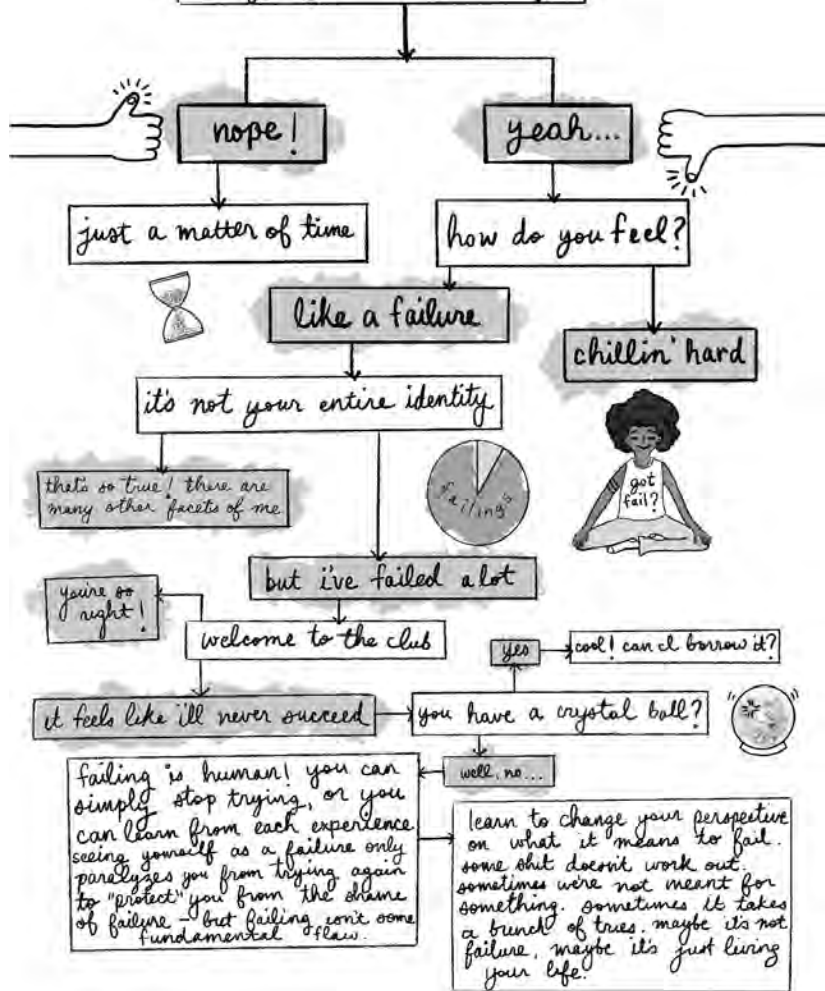 nope!
yeah...
just a matter of time
how do you feel?
like a failure
chillin' hard
it's not your entire identity
that's so true! there are
many other facets of me
failings
got
fail?
but i've failed a lot
you're so
right!
welcome to the club
yes
cool! can I borrow it?
it feels like i'll never succeed
you have a crystal ball?
well, no...
failing is human! you can
simply stop trying, or you
can learn from each experience
seeing yourself as a failure only
paralyzes you from trying again
to "protect" you from the shame
of failure – but failing isn't some
fundamental flaw.
learn to change your perspective
on what it means to fail.
some shit doesn't work out.
sometimes we're not meant for
something. sometimes it takes
a bunch of tries. maybe it's not
failure, maybe it's just living
your life.